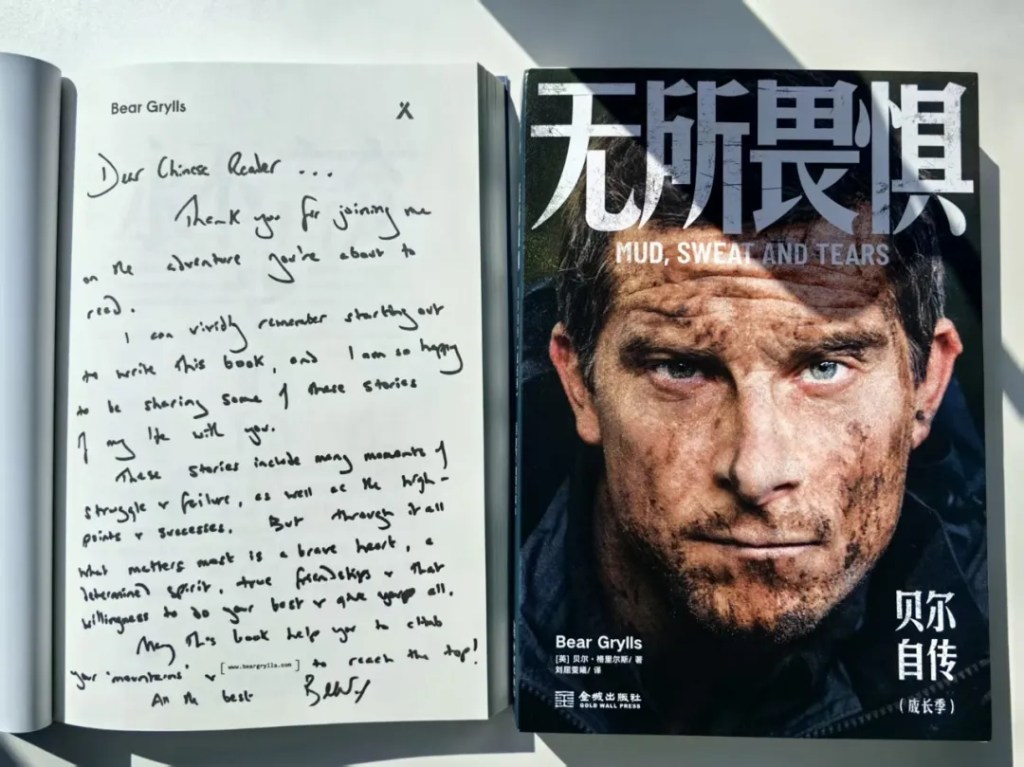 Bear Grylls
Dear Chinese Reader ...
Thank you for joining me
on the adventure you're about to
read.
I can vividly remember starting out
to write this book, and I am so happy
to be sharing some of these stories
of my life with you.
These stories include many moments of
struggle & failure, as well as the high-
points & successes. But through it all
what matters most is a brave heart, a
determined spirit, true friendships & that
willingness to do your best & give your all.
May this book help you to climb
your 'mountains' & to reach the top!
[ www.beargrylls.com ]
All the best
Bear
无所畏惧
MUD, SWEAT AND TEARS
贝尔
自传
(成长季)
Bear Grylls
[英] 贝尔·格里尔斯/ 著
译/
金城出版社
GOLD WALL PRESS